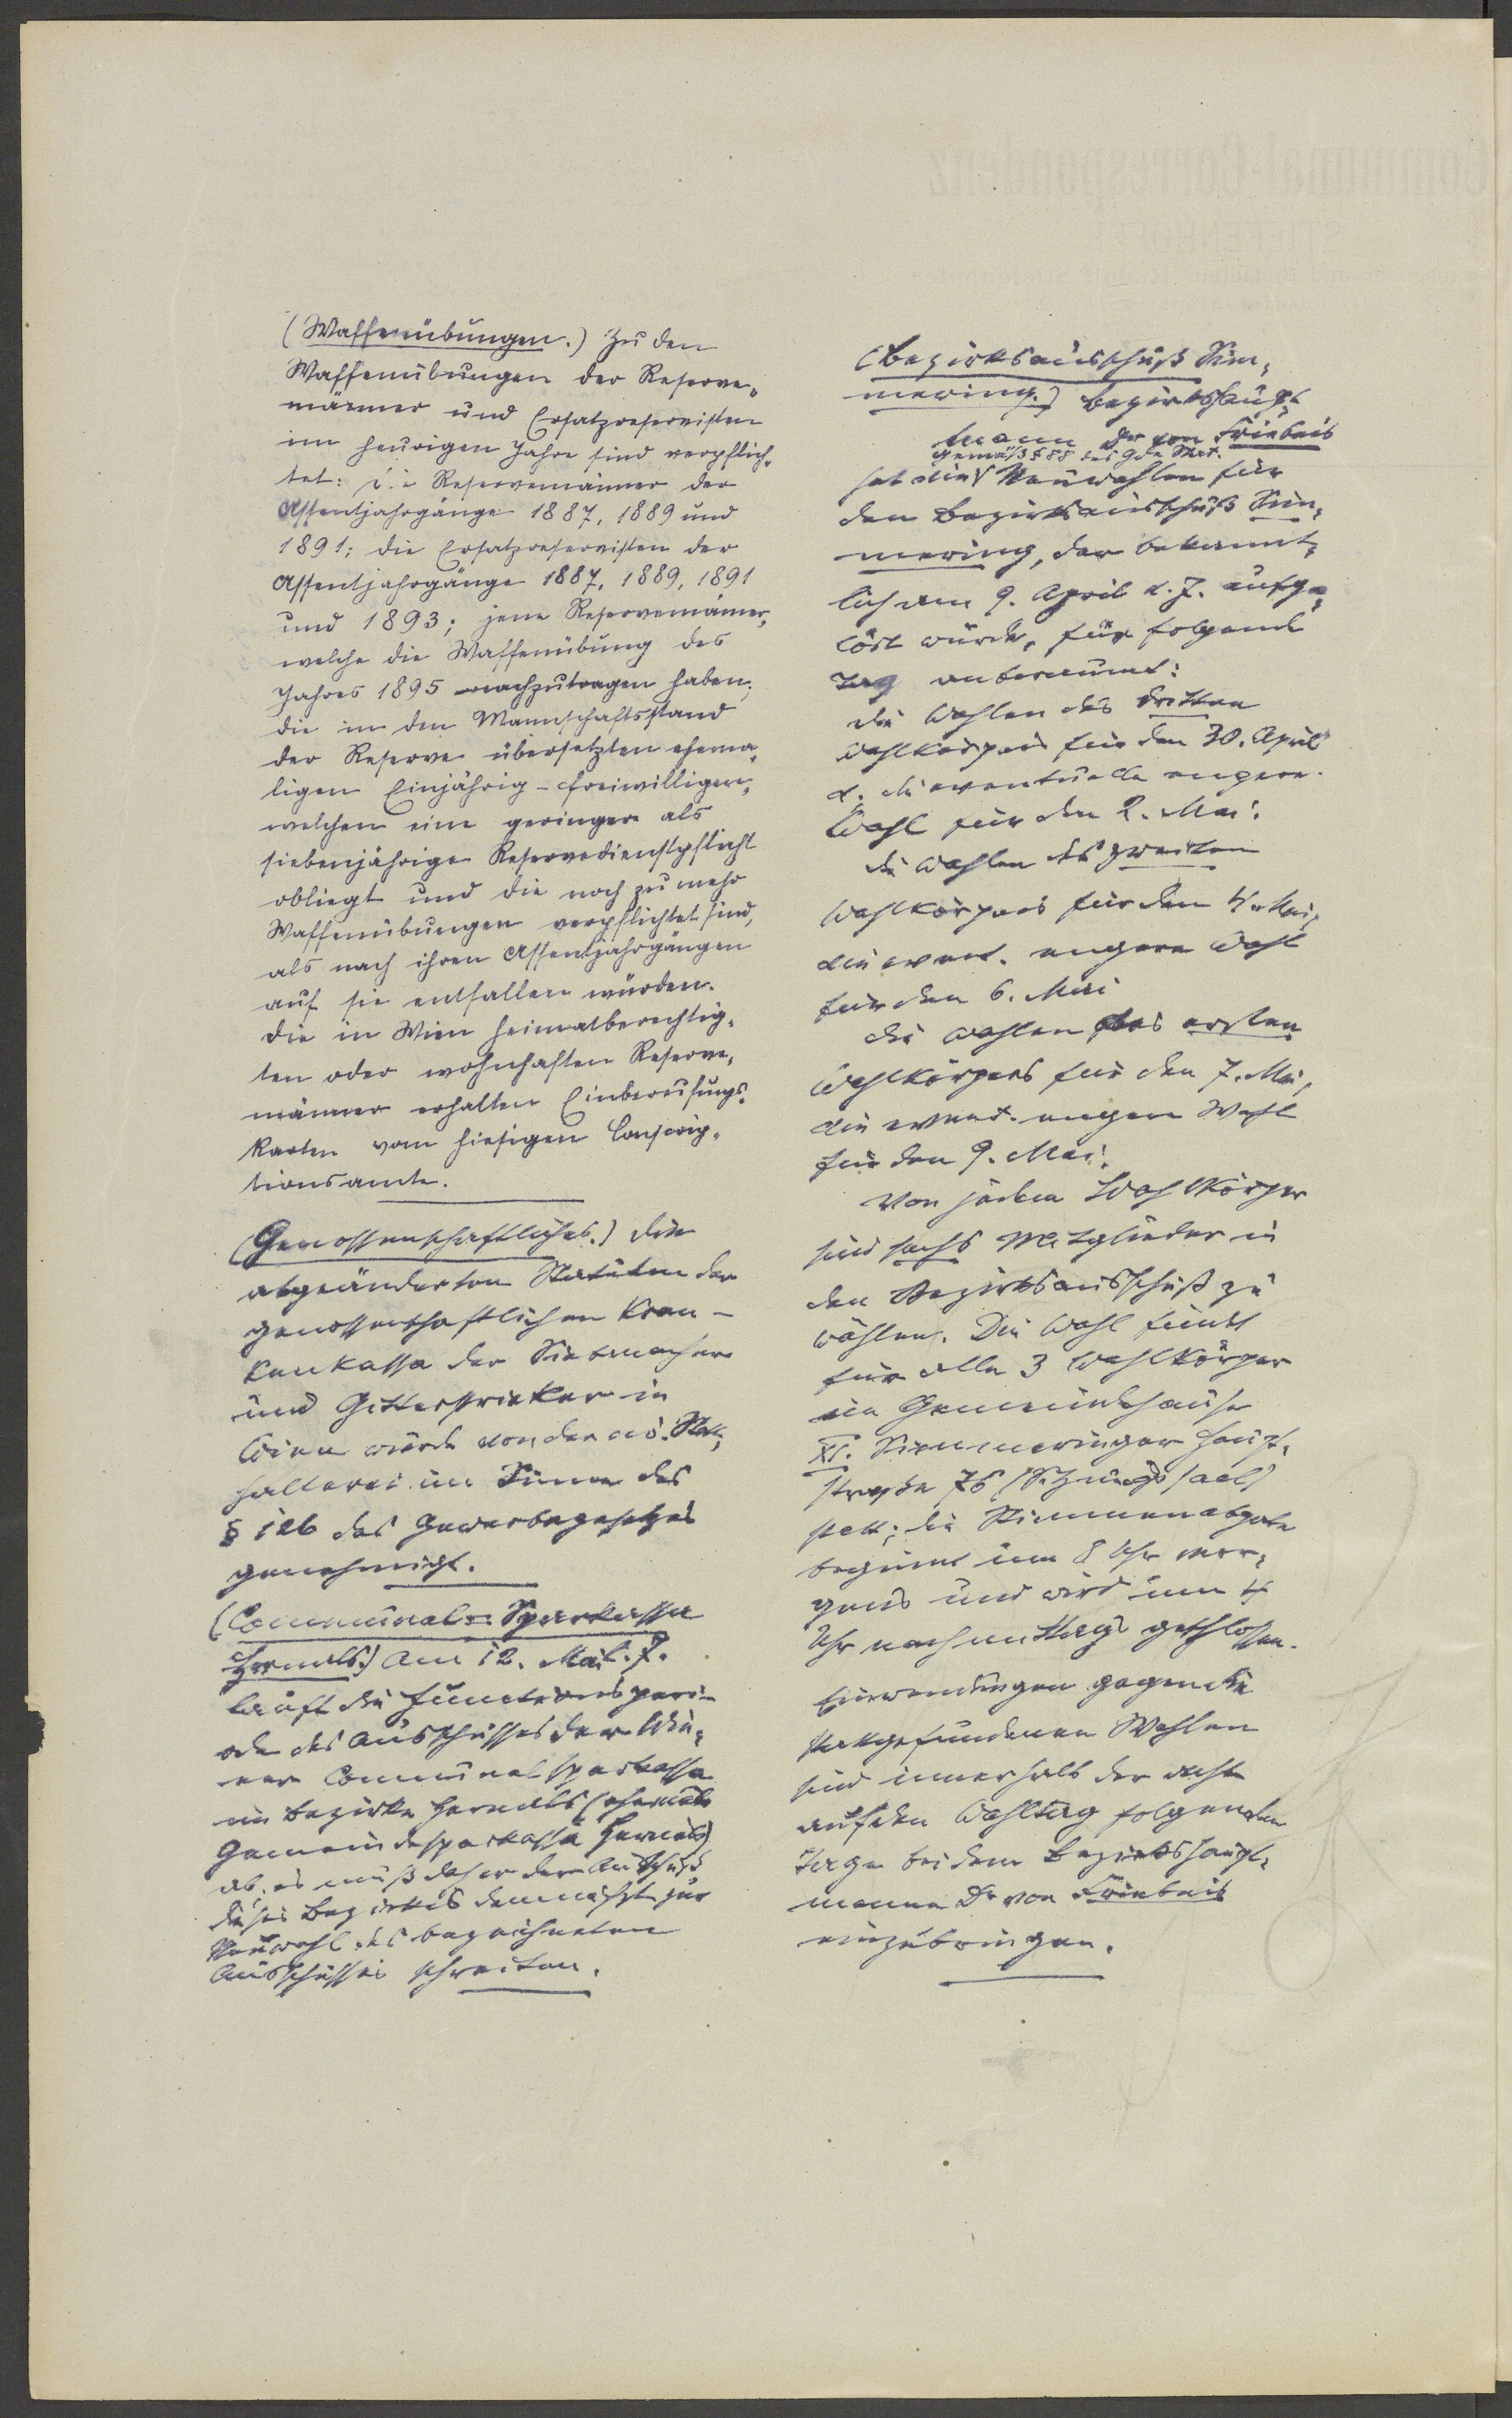 (Waffenübungen.) Zu den
Waffenübungen der Reserve-
männer und Ersatzreservisten
im heurigen Jahre sind verpflich-
tet: die Reservemänner der
Assentjahrgänge 1887, 1889 und
1891; die Ersatzreservisten der
Assentjahrgänge 1887, 1889, 1891
und 1893; jene Reservemänner,
welche die Waffenübung des
Jahres 1895 nachzutragen haben;
die in den Mannschaftsstand
der Reserve übersetzten ehema-
ligen Einjährig-Freiwilligen,
welchen eine geringere als
siebenjährige Reservedienstpflicht
obliegt und die noch zu mehr
Waffenübungen verpflichtet sind,
als nach ihren Assentjahrgängen
auf sie entfallen würden.
Die in Wien heimatberechtig-
ten oder wohnhaften Reserve-
männer erhalten Einberufungs-
karten vom hiesigen Conscrip-
tionsamte.
(Genossenschaftliches.) Die
abgeänderten Statuten der
genossenschaftlichen Kran-
kenkassa der Siebmacher
und Gitterstricker in
Wien wurde von der n.ö. Statt-
halterei im Sinne des
§ 126 des Gewerbegesetzes
genehmigt.
(Communal-Sparkassa
Hernals.) Am 12. Mai l. J.
läuft die Functionsperi-
ode des Ausschusses der Wie-
ner Communalsparkassa
im Bezirke Hernals (ehemals
Gemeindesparkassa Hernals)
ab; es muß daher der Ausschuß
dieses Bezirkes demnächst zur
Neuwahl des bezeichneten
Ausschusses schreiten.
(Bezirksausschuß Sim-
mering.) Bezirkshaupt-
mann Dr von Friebeis
gemäß § 88 des Gde Stat.
hat die Neuwahlen für
den Bezirksausschuß Sim-
mering, der bekannt-
lich am 9. April d. J. aufge-
löst wurde, für folgende
Tag anberaumt:
die Wahlen des dritten
Wahlkörpers für den 30. April
u. die eventuelle engere
Wahl für den 2. Mai;
die Wahlen des zweiten
Wahlkörpers für den 4. Mai,
die event. engere Wahl
für den 6. Mai
die Wahlen des ersten
Wahlkörpers für den 7. Mai,
die event. engere Wahl
für den 9. Mai.
Von jedem Wahlkörper
sind sechs Mitglieder in
den Bezirksausschuß zu
wählen. Die Wahl findet
für alle 3 Wahlkörper
im Gemeindehause
XI. Simmeringer Haupt-
straße 76 (Sitzungssaal)
statt; die Stimmenabgabe
beginnt um 8 Uhr mor-
gens und wird um 4
Uhr nachmittags geschlossen.
Einwendungen gegen die
stattgefundenen Wahlen
sind innerhalb der acht
auf den Wahltag folgenden
Tage bei dem Bezirkshaupt-
manne Dr von Friebeis
einzubringen.